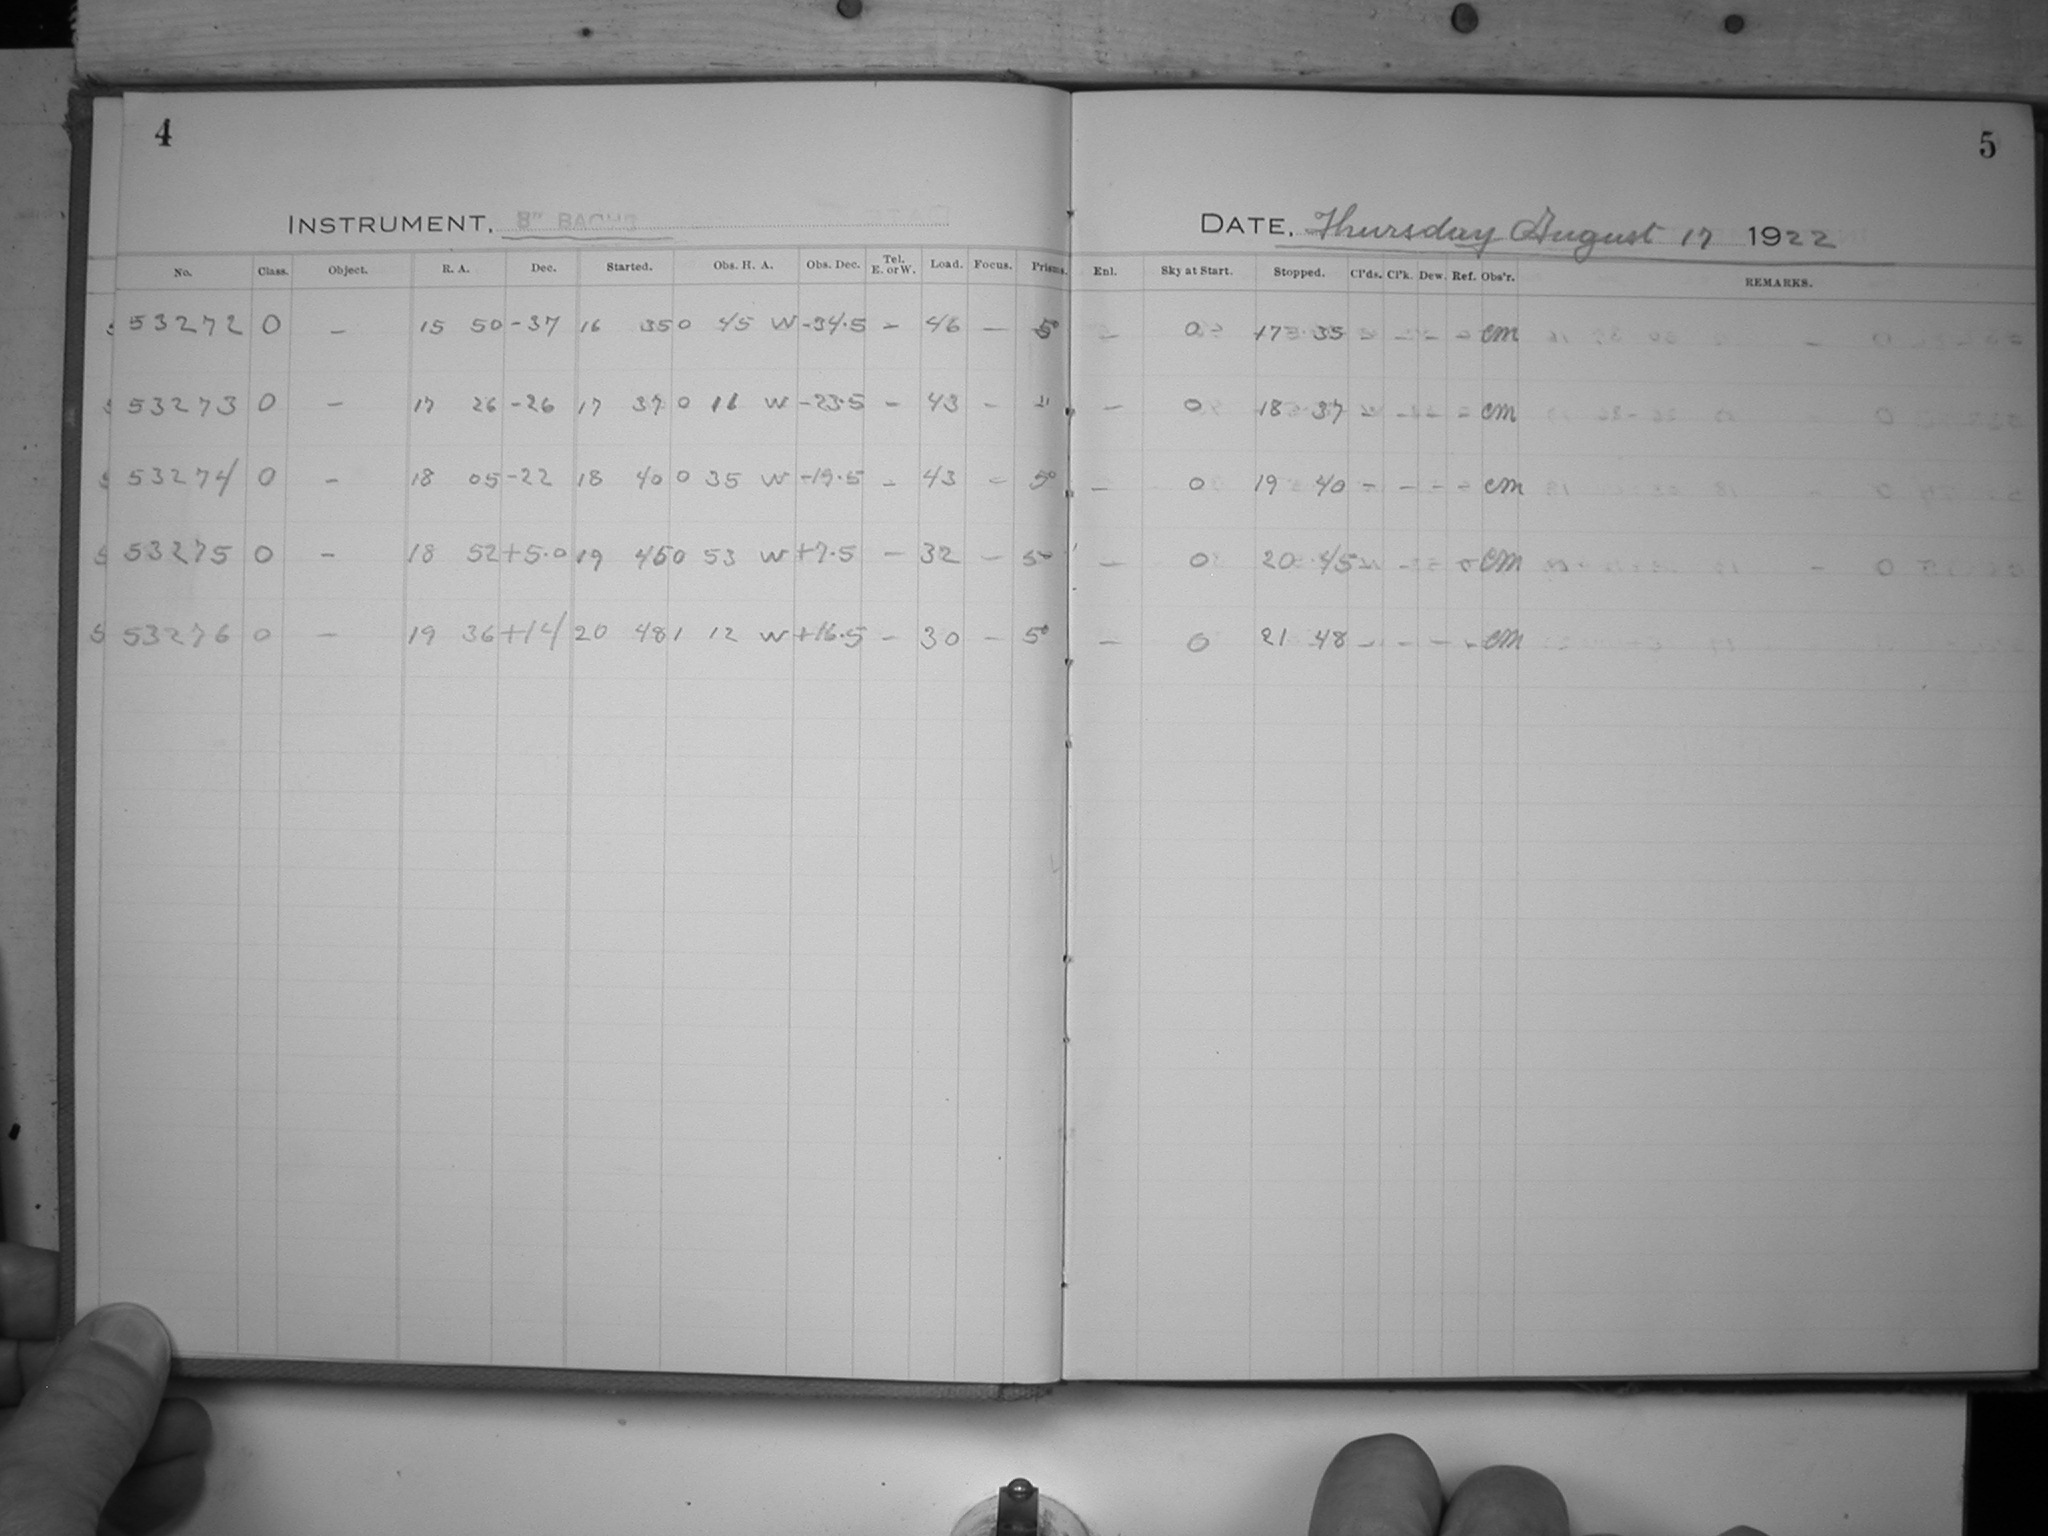 4
INSTRUMENT, 8" BACHE
No. Class. Object. R. A. Dec. Started. Obs. H. A. Obs. Dec. Tel. E. or W. Load. Focus. Prisms.
53272 0 – 15 50 -37 16 35 0 45 W -34.5 – 46 – 5°
53273 0 – 17 26 -26 17 37 0 11 W -23.5 – 43 – "
53274 0 – 18 05 -22 18 40 0 35 W -19.5 – 43 – 5°
53275 0 – 18 52 +5.0 19 45 0 53 W +7.5 – 32 – 5°
53276 0 – 19 36 +14 20 48 1 12 W +16.5 – 30 – 5°
5
DATE, Thursday August 17 1922
Enl. Sky at Start. Stopped. Cl'ds. Cl'k. Dew. Ref. Obs'r. REMARKS.
– 0 17 35 – – – – cm
– 0 18 37 – – – – cm
– 0 19 40 – – – – cm
– 0 20 45 – – – cm
– 0 21 48 – – – – cm